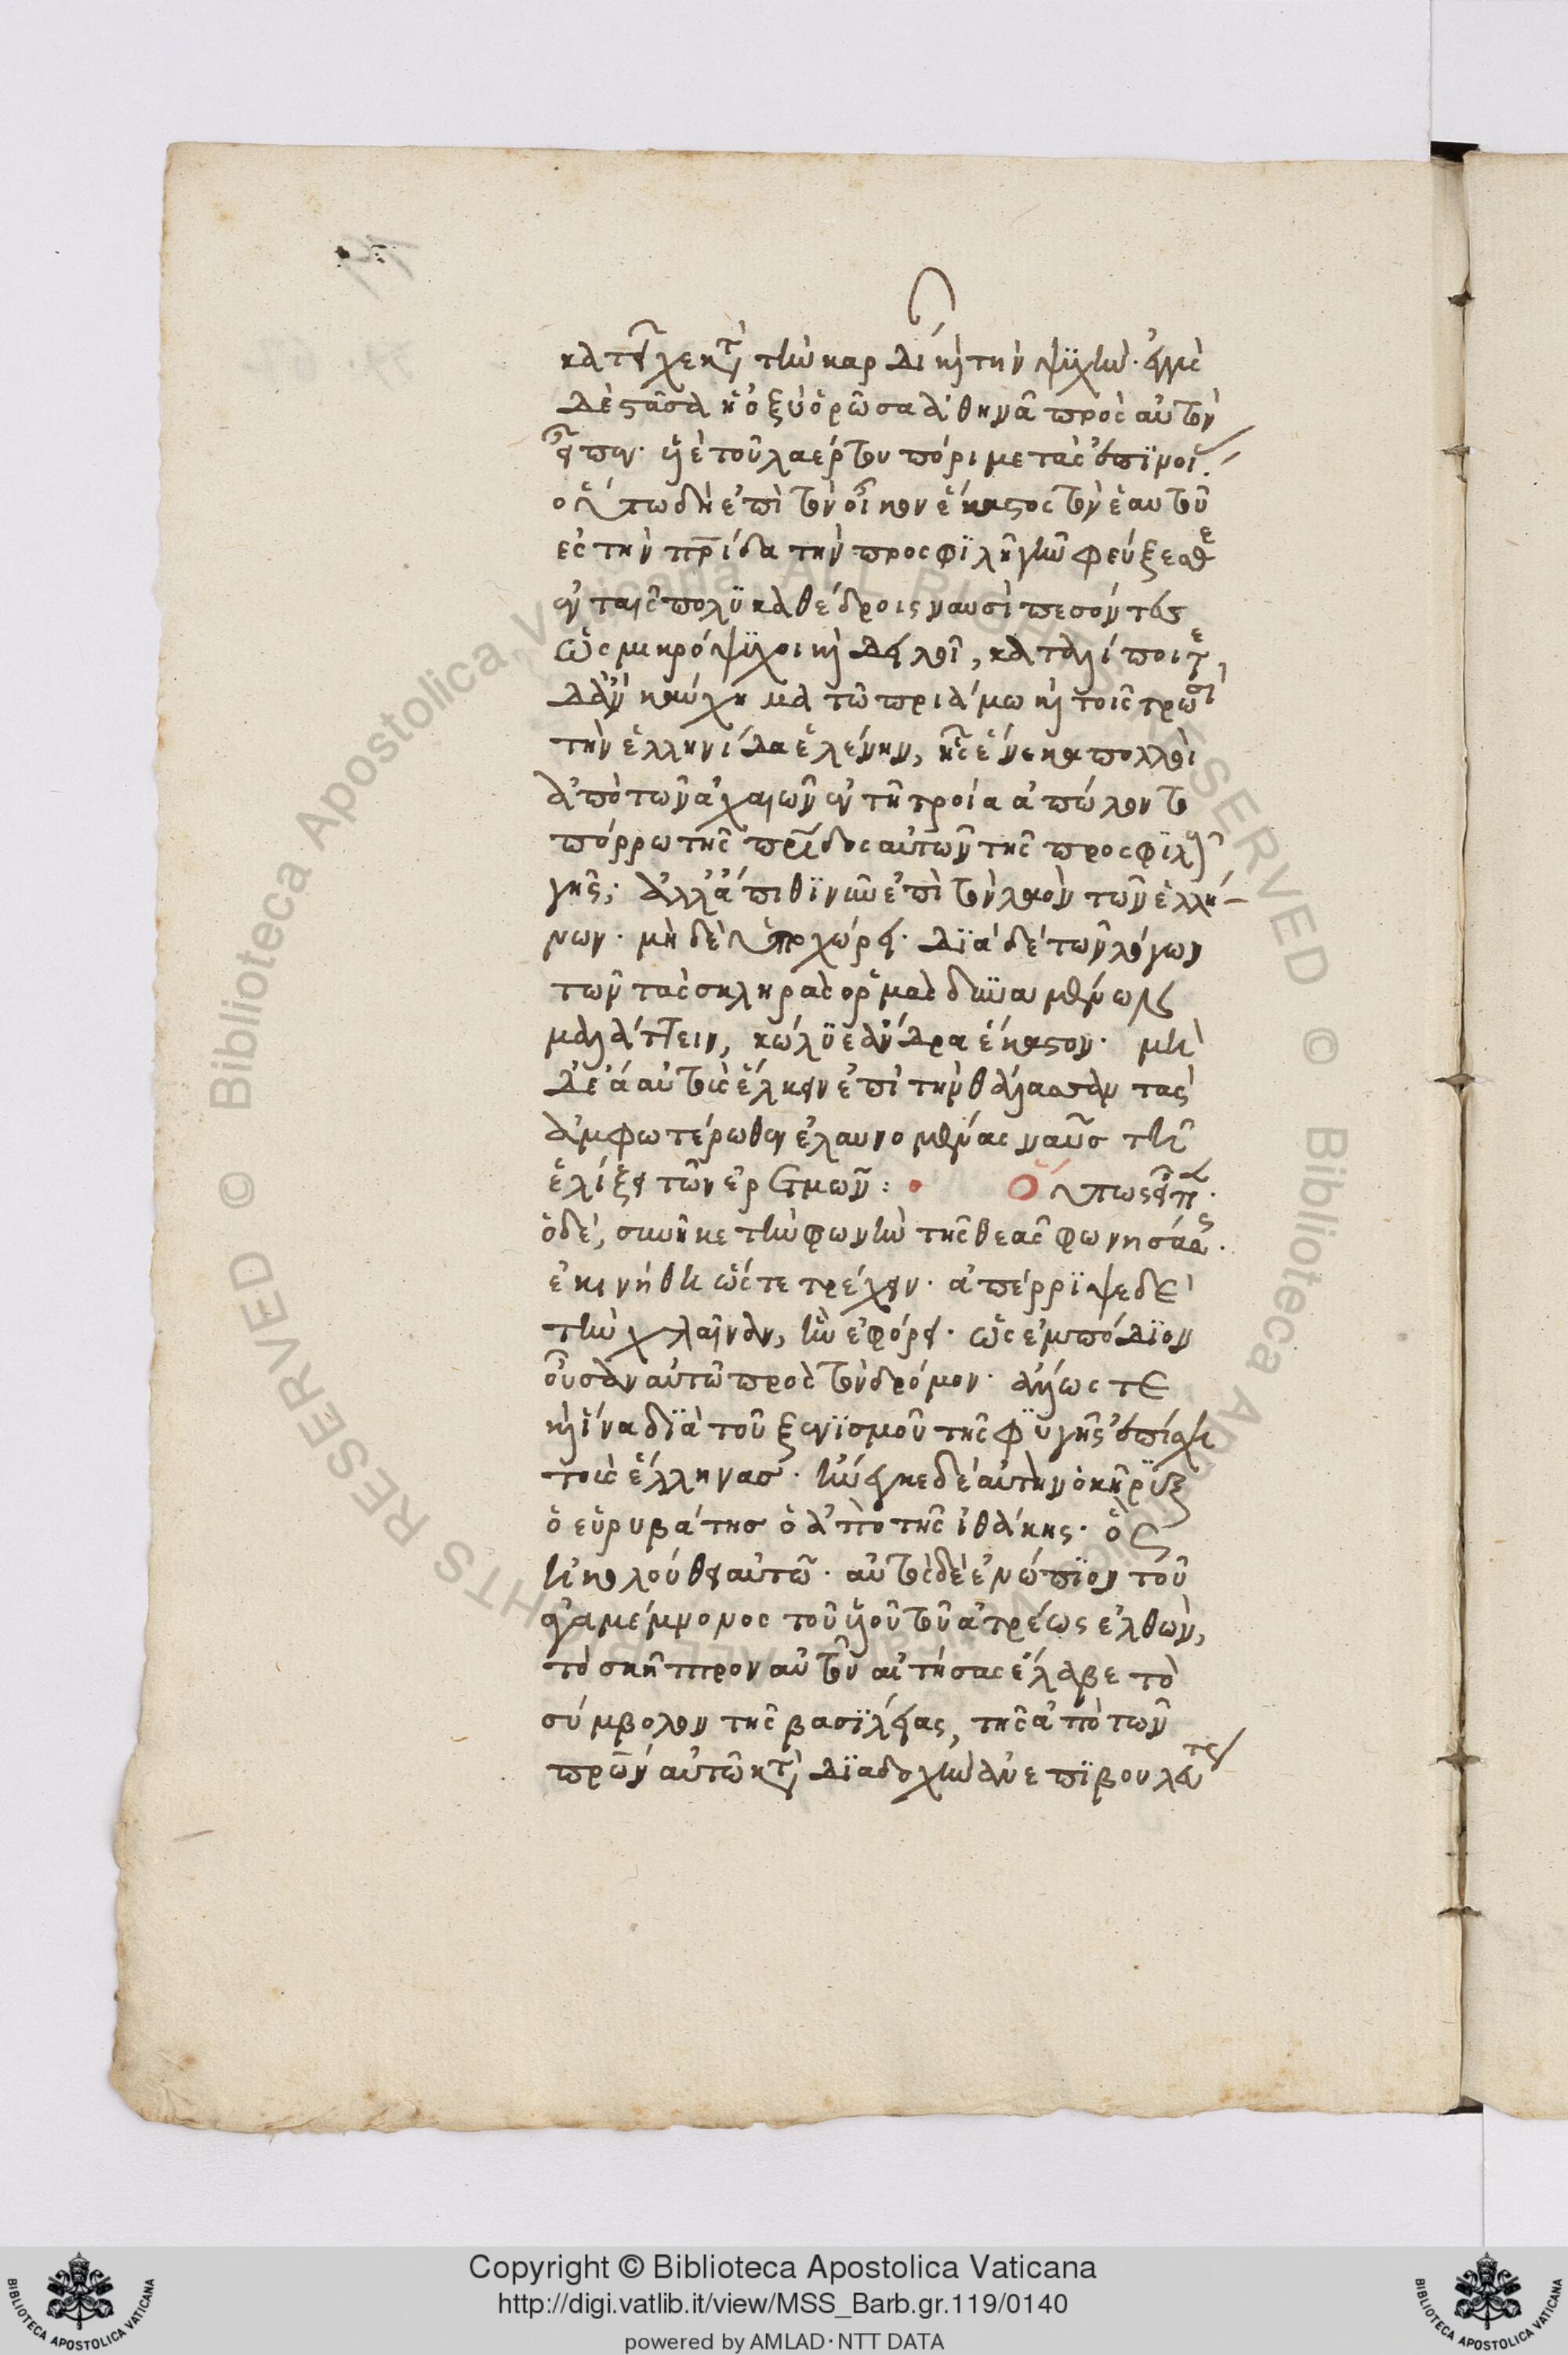 κατεῖχε κατὰ τὴν καρδίαν καὶ τὴν ψϋχήν. ἐγγὺς
δὲ στᾶσα ἡ ὀξὺ ὁρῶσα ἀθηνᾶ πρὸς αὐτὸν
εἶπεν. υἱὲ τοῦ λαέρτου πόριμε τὰς ἐπϊνοίας.
οὕτω δὴ ἐπὶ τὸν οἶκον ἕκαστος τὸν ἑαυτοῦ
ἐς τὴν πρίδα τὴν προσφϊλῆ γῆν φεύξεσθε
ἐν ταῖς πολϋκαθέδροις ναυσὶ πεσόντες
ὡς μικρόψϋχοι καὶ δειλοὶ, καταλίποιτε
δ' ἂν καύχημα τῶ πριάμω καὶ τοῖς τρωσὶ
τὴν ἑλληνίδα ἑλένην, ἧς ἕνεκα πολλοὶ
ἀπὸ τῶν ἀχαιῶν ἐν τῆ τροία ἀπώλοντο
πόρρω τῆς πρίδος αὐτῶν τῆς προσφϊλοῦς
γῆς; ἀλλ' ἄπιθϊ νῦν ἐπὶ τὸν λαὸν τῶν ἑλλή-
νων. μὴ δὲ ὑποχώρει. δϊὰ δὲ τῶν λόγων
τῶν τὰς σκληρὰς ὁρμὰς δυναμένων
μαλάττειν, κώλϋε ἄνδρα ἕκαστον. μὴ
δὲ ἔα αὐτοὺς ἕλκειν ἐπὶ τὴν θάλασσαν τὰς
ἀμφωτέρωθεν ἐλαυνομένας ναῦς τῆ
ἑλίξει τῶν ἐρετμῶν: Οὕτως εἶπεν.
ὁ δὲ, συνῆκε τὴν φωνὴν τῆς θεᾶς φωνησάσης.
ἐκινήθη ὥστε τρέχειν. ἀπέρρϊψε δὲ
τὴν χλαῖναν, ἣν ἐφόρει. ὡς ἐμπόδϊον
οὖσαν αὐτῶ πρὸς τὸν δρόμον. ἄλλως τε
καὶ ἵνα δϊὰ τοῦ ξενϊσμοῦ τῆς φϋγῆς ἐπίσχη
τοὺς ἕλληνας. ἤνεγκε δὲ αὐτὴν ὁ κῆρϋξ
ὁ εὐρυβάτης ὁ ἀπὸ τῆς ἰθάκης. ὃς
ἠκολούθει αὐτῶ. αὐτὸς δὲ ἐνώπϊον τοῦ
ἀγαμέμνονος τοῦ υἱοῦ τοῦ ἀτρέως ἐλθὼν,
τὸ σκῆπτρον αὐτοῦ αἰτήσας ἔλαβε τὸ
σύμβολον τῆς βασϊλείας, τῆς ἀπὸ τῶν
πρων αὐτῶ κατὰ δϊαδοχὴν ἀνεπϊβουλεύτως